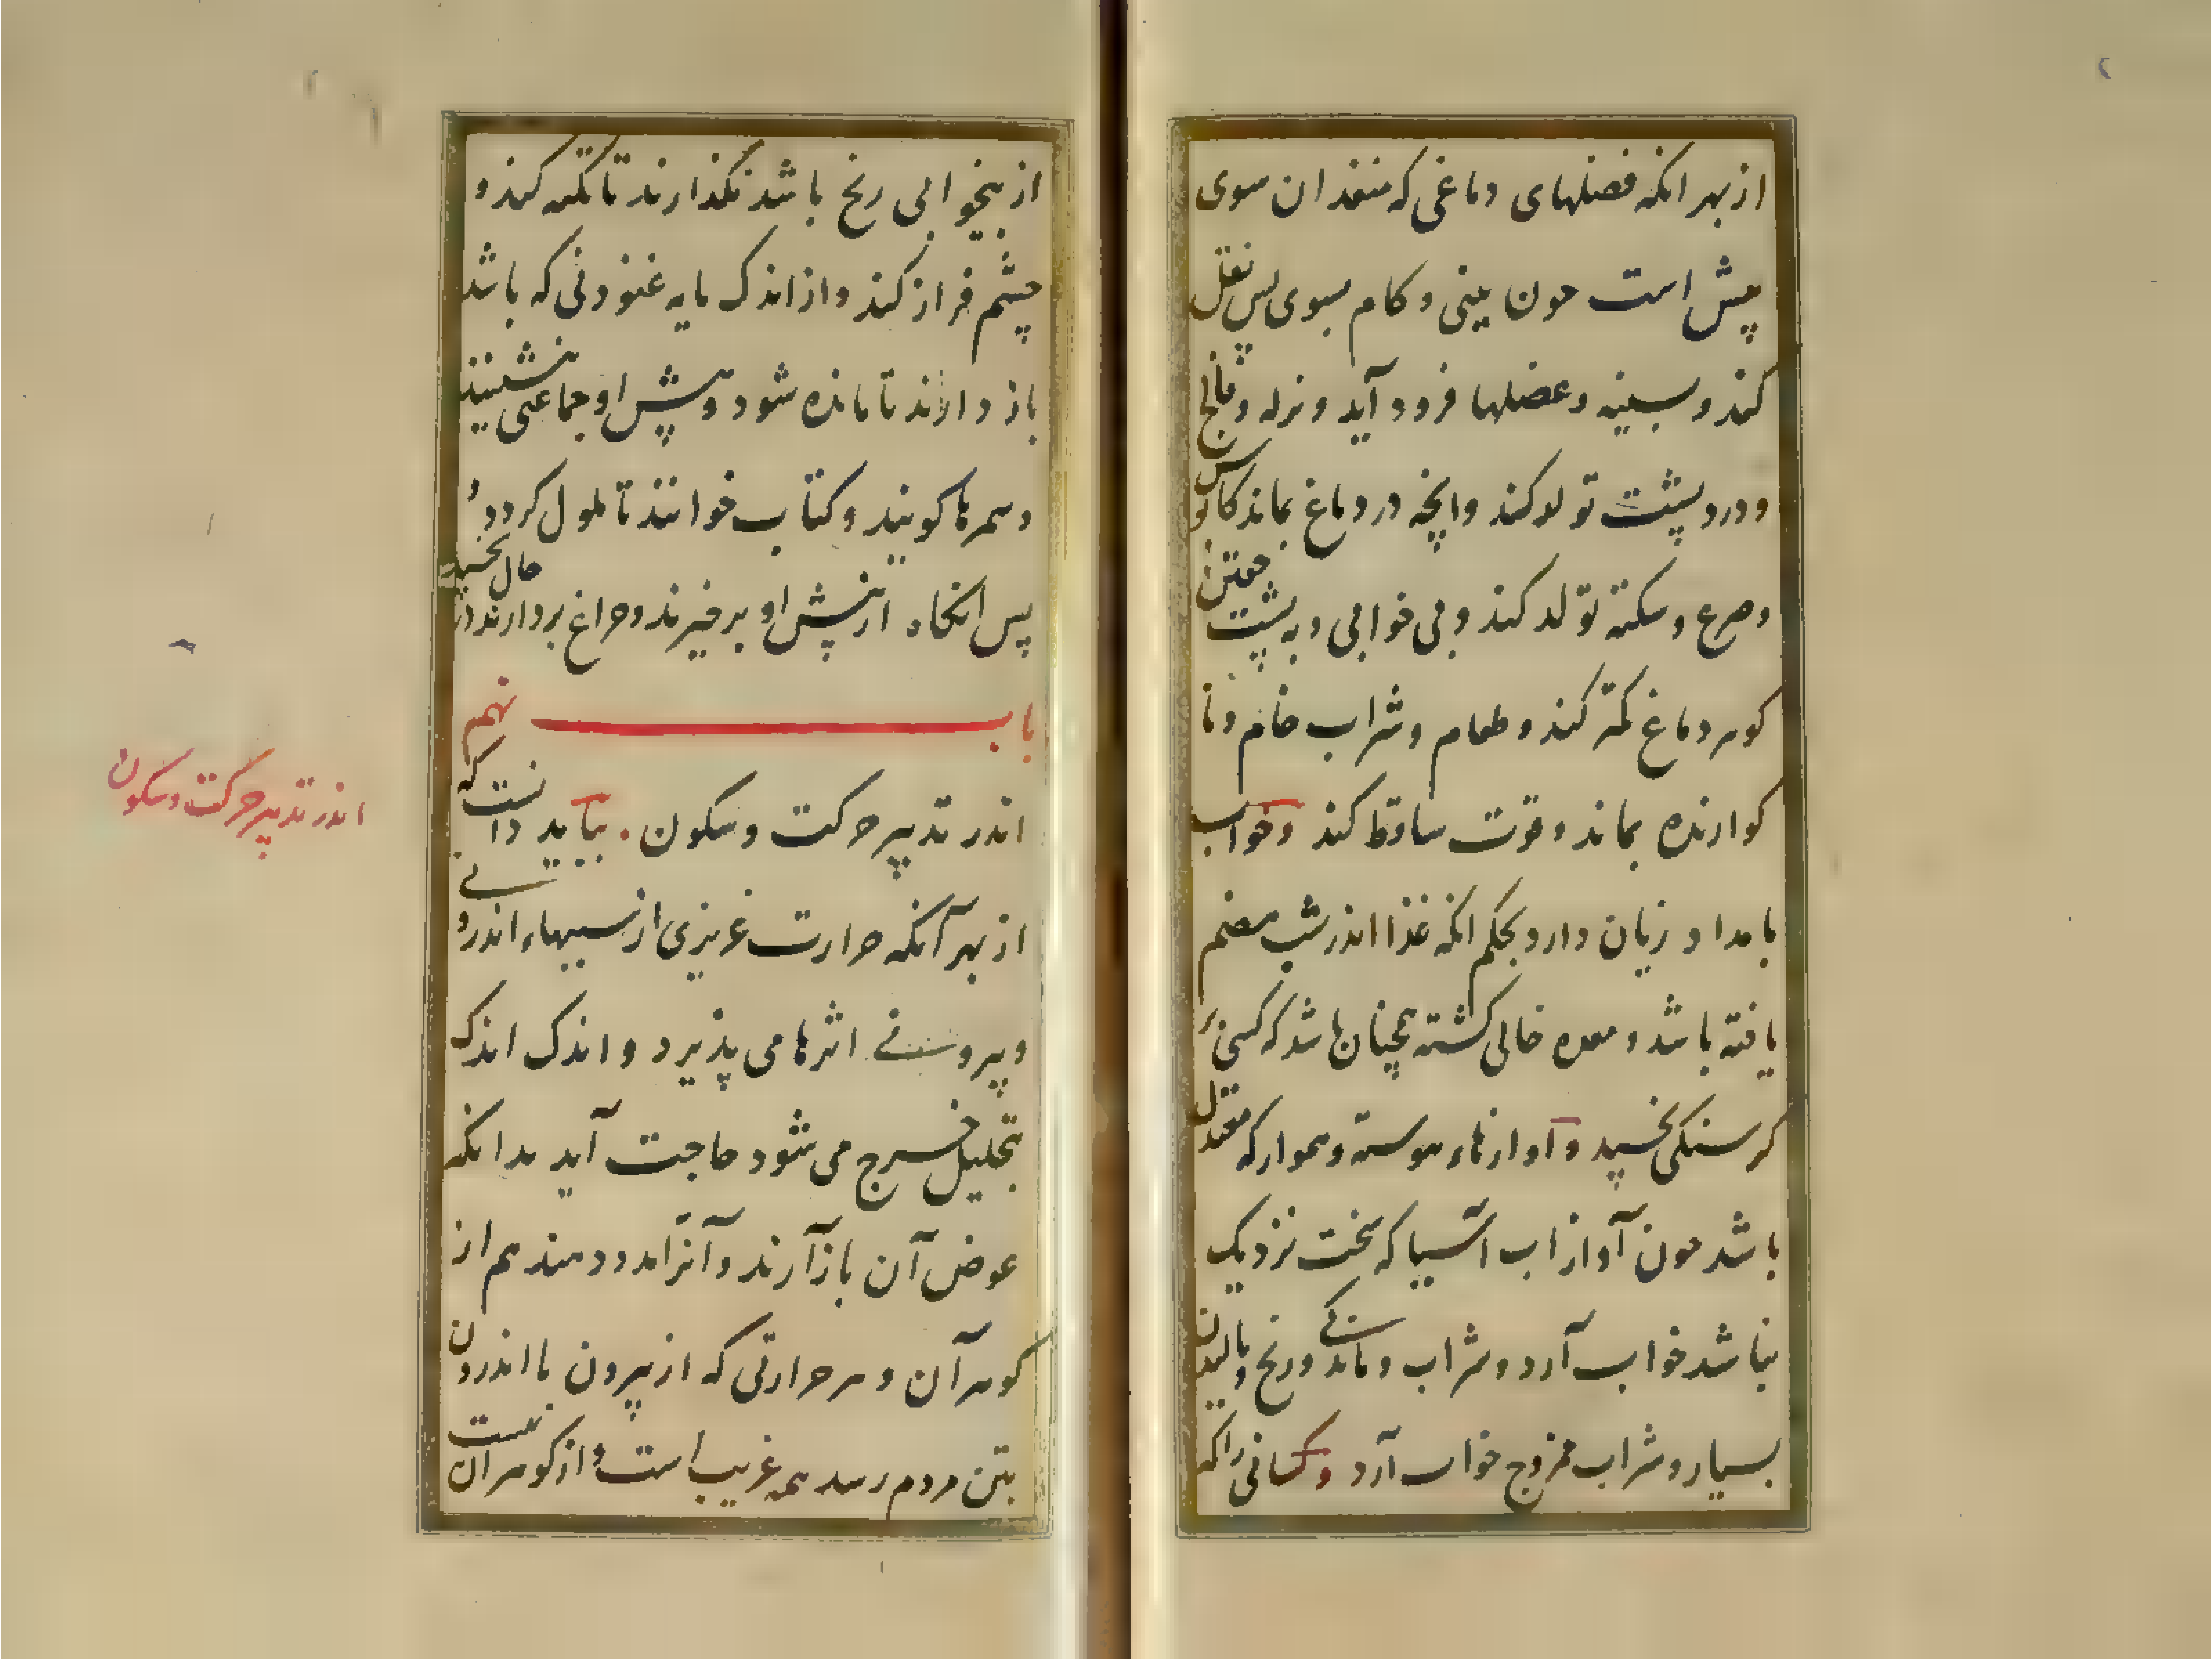 از بهر انکه فضلهای دماغی که منفذ ان سوی
پیش است حون بینی و کام بسوی پس نقل
کند و سینه و عضلها فرود آید و نزله و فالج
و درد پشت تولد کند وانچه در دماغ بماند کابوس
و صرع و سکته تولد کند و بی خوابی و به پشت خفتن
کوهر دماغ کمتر کند و طعام و شراب خام و نا
کوارنده بماند و قوت ساقط کند و خواب
بامداد زیان دارد بحکم انکه غذا اندر شب هضم
یافته باشد و معده خالی کشته همچنان باشد که کسی بر
کرسنکی بخسپد و آوازهاء پیوسته و هموار که معتدل
باشد حون آواز اب اسیا که سخت نزدیک
نباشد خواب آرد و شراب و ماندکی و رنج و مالیدن
بسیار و شراب ممزوج خواب آرد و کسانی را که
از بیخوابی رنج باشد نکذارند تا تکیه کند و
چشم فراز کند و از اندک مایه غنودنی که باشد
باز دارند تا مانده شود و پیش او جماعتی بنشینند
و سمرها کویند و کتاب خوانند تا ملول کردد و
پس انکاه از پیش او برخیزند و چراغ بردارند در حال بخسپد
باب نهم
اندر تدبیر حرکت و سکون . بباید دانست که
از بهر آنکه حرارت غریزی از سببهاء اندرونی
و بیرونی اثرها می پذیرد و اندک اندک
بتحلیل خرج می شود حاجت آید بدانکه
عوض آن باز آرند و آنرا مدد دهند هم از
کوهر آن و هر حرارتی که از بیرون یا اندرون
بتن مردم رسد همه غریب است و از کوهر ان نیست
اندر تدبیر حرکت و سکون